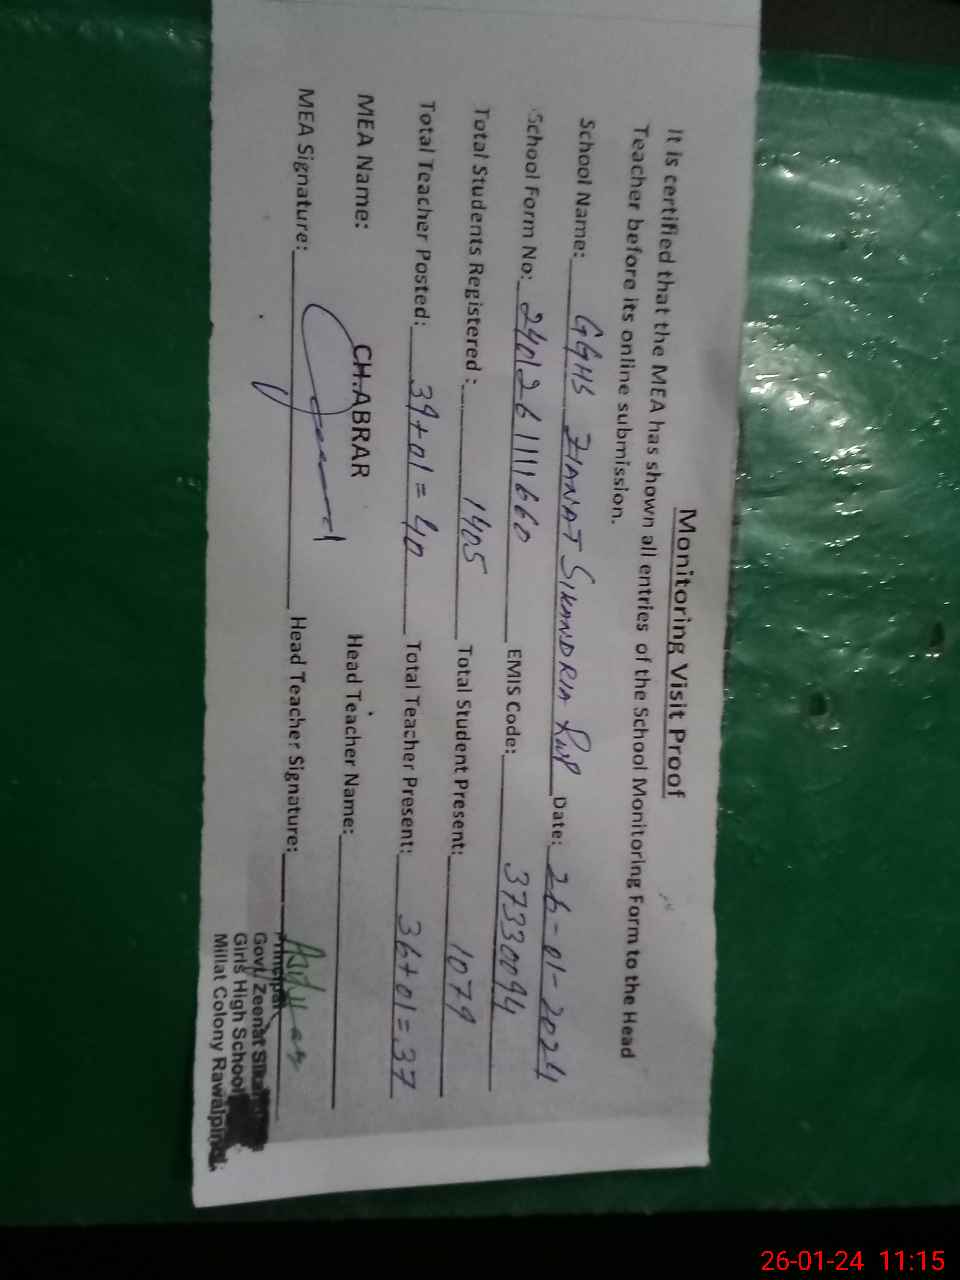 Monitoring Visit Proof
It is certified that the MEA has shown all entries of the School Monitoring Form to the Head
Teacher before its online submission.
School Name: GGHS ZIANAT SIKANDRIA RWP Date: 26-01-2024
School Form No: 240126111660 EMIS Code: 37330094
Total Students Registered : 1405 Total Student Present: 1079
Total Teacher Posted: 39+01=40 Total Teacher Present: 36+01=37
MEA Name: CH.ABRAR Head Teacher Name:
MEA Signature: Head Teacher Signature:
Principal
Govt. Zeenat
Girls High School
Millat Colony Rawalpindi
26-01-24 11:15